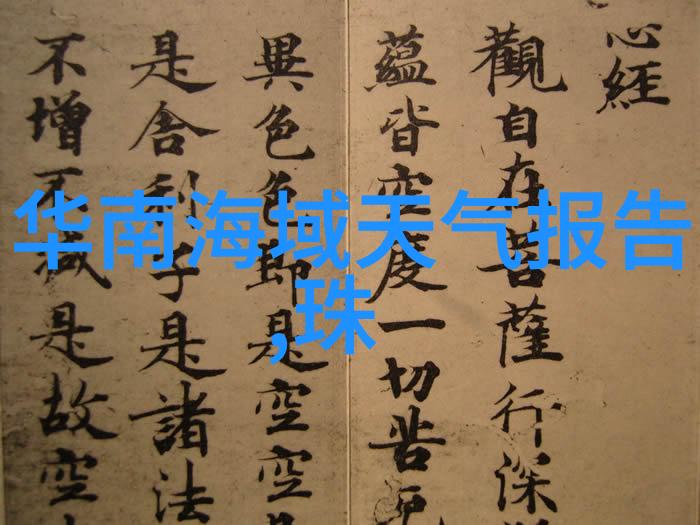 华南海域天气报告
,珠
心經
觀自在菩薩行深
蘊皆空度一切苦厄
異色色即是空空
是舍利子是諸法
不增不減是故空